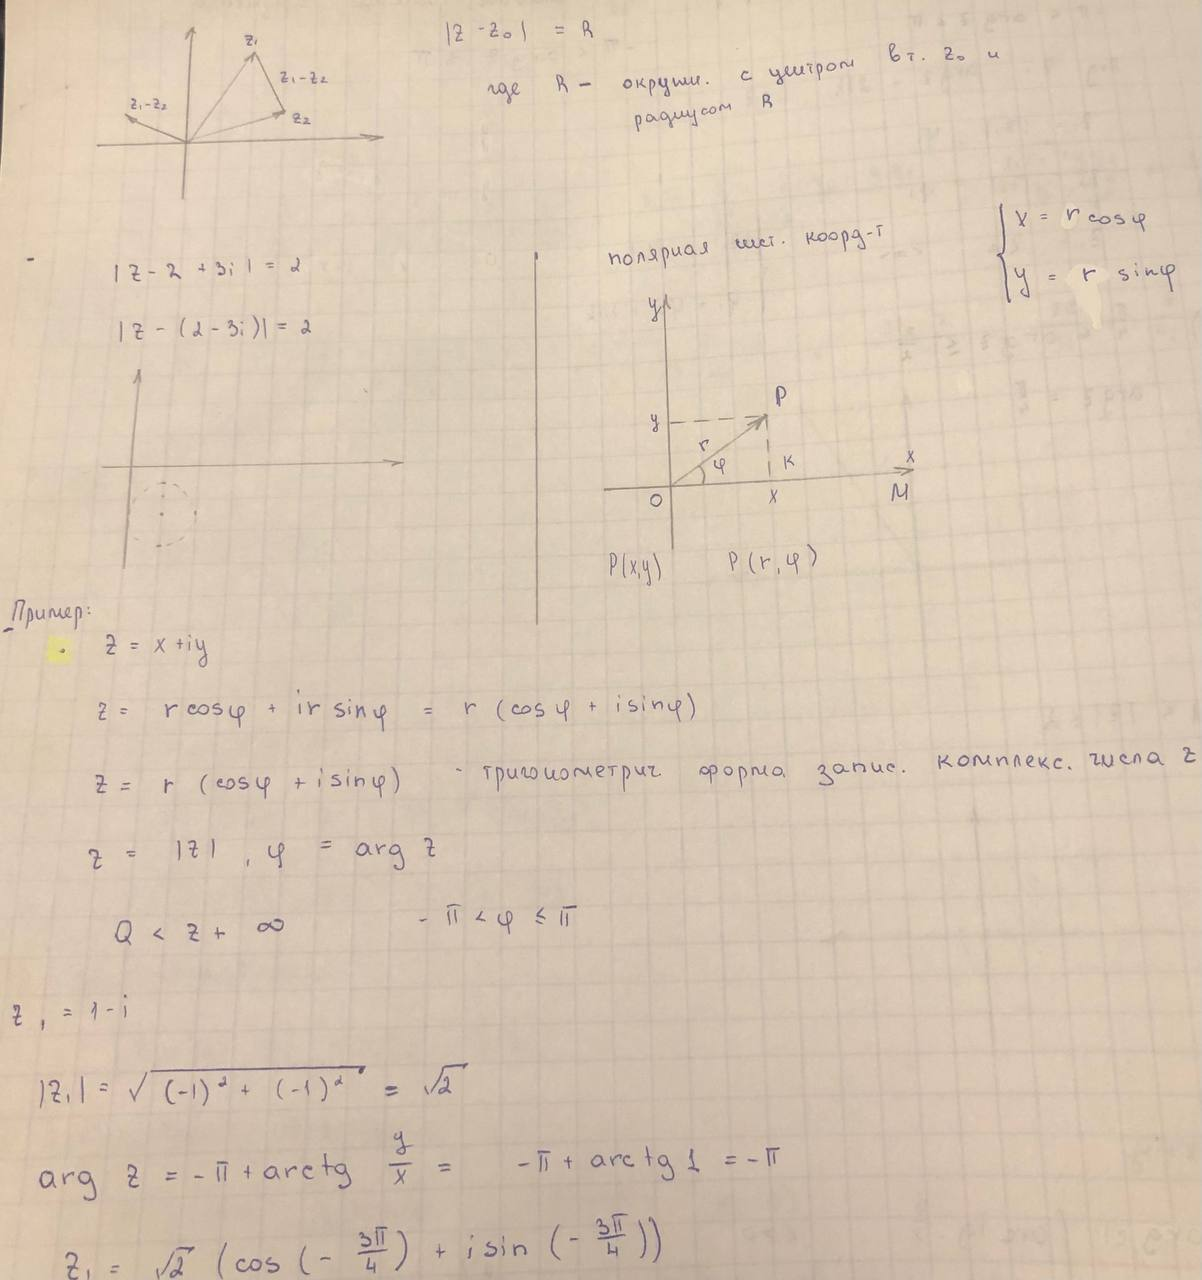 z₁
z₁-z₂
z₂
z₁-z₂
|z - z₀| = R
где R - окружн. с центром в т. z₀ и
радиусом R
|z - 2 + 3i| = 2
|z - (2 - 3i)| = 2
полярная сист. коорд-т
{ x = r cosφ
y = r sinφ
y
y
P
r
φ
K
x
O
x
M
P(x,y) P(r,φ)
Пример:
z = x + iy
z = r cosφ + ir sinφ = r (cosφ + isinφ)
z = r (cosφ + isinφ) - тригонометрич форма запис. комплекс. числа z
z = |z|, φ = arg z
0 < z + ∞ - π < φ ≤ π
z₁ = 1 - i
|z₁| = √(-1)² + (-1)² = √2
arg z = - π + arctg y/x = - π + arctg 1 = - π
z₁ = √2 (cos (- 3π/4) + isin (- 3π/4))